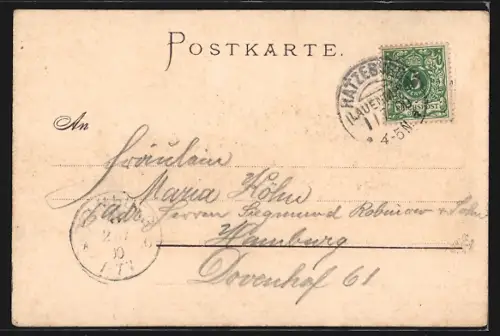 POSTKARTE.
RATZEBURG
(LAUENB
4-5N
5
An
Fräulein
Maria Höhn
p. Adr. Herren Siegmund Robinow & Sohn
Hamburg
Dovenhof 61